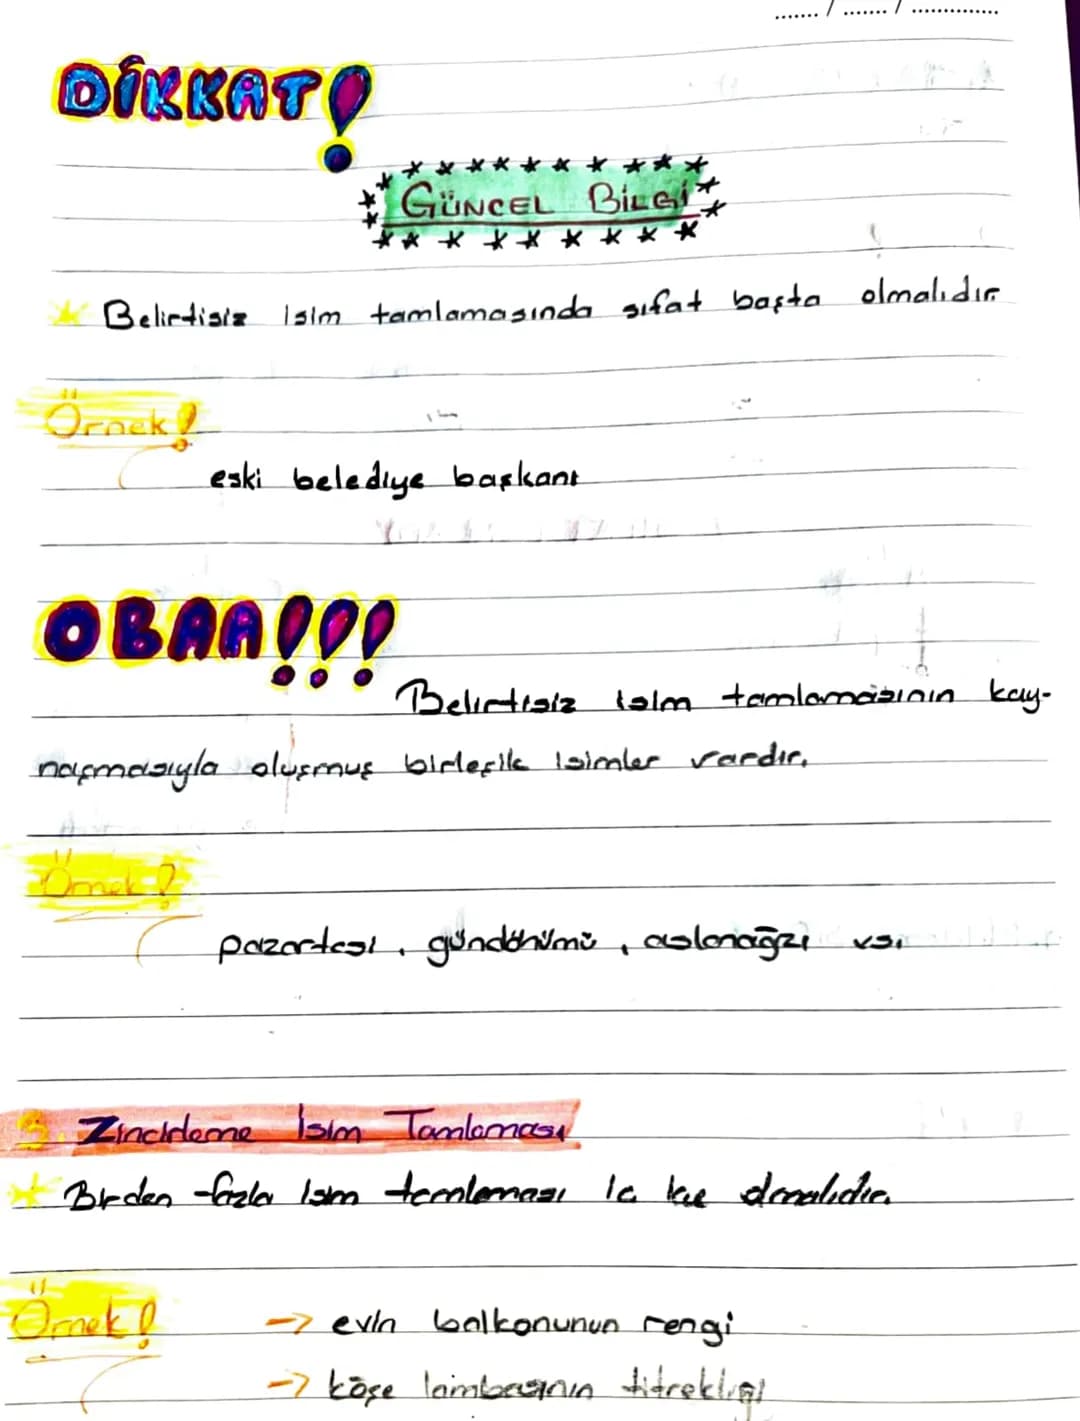 ....... / ....... / ..............
DİKKAT!
GÜNCEL BİLGİ
Belirtisiz isim tamlamasında sıfat başta olmalıdır.
Örnek!
eski belediye başkanı
OBAA!!!
Belirtisiz isim tamlamasının kay-
naşmasıyla oluşmuş birleşik isimler vardır.
Örnek!
pazartesi, gündönümü, aslanağzı vs.
3. Zincirleme İsim Tamlaması
Birden fazla isim tamlaması olmalıdır.
Örnek!
→ evin balkonunun rengi
→ köşe lambasının titrekliği